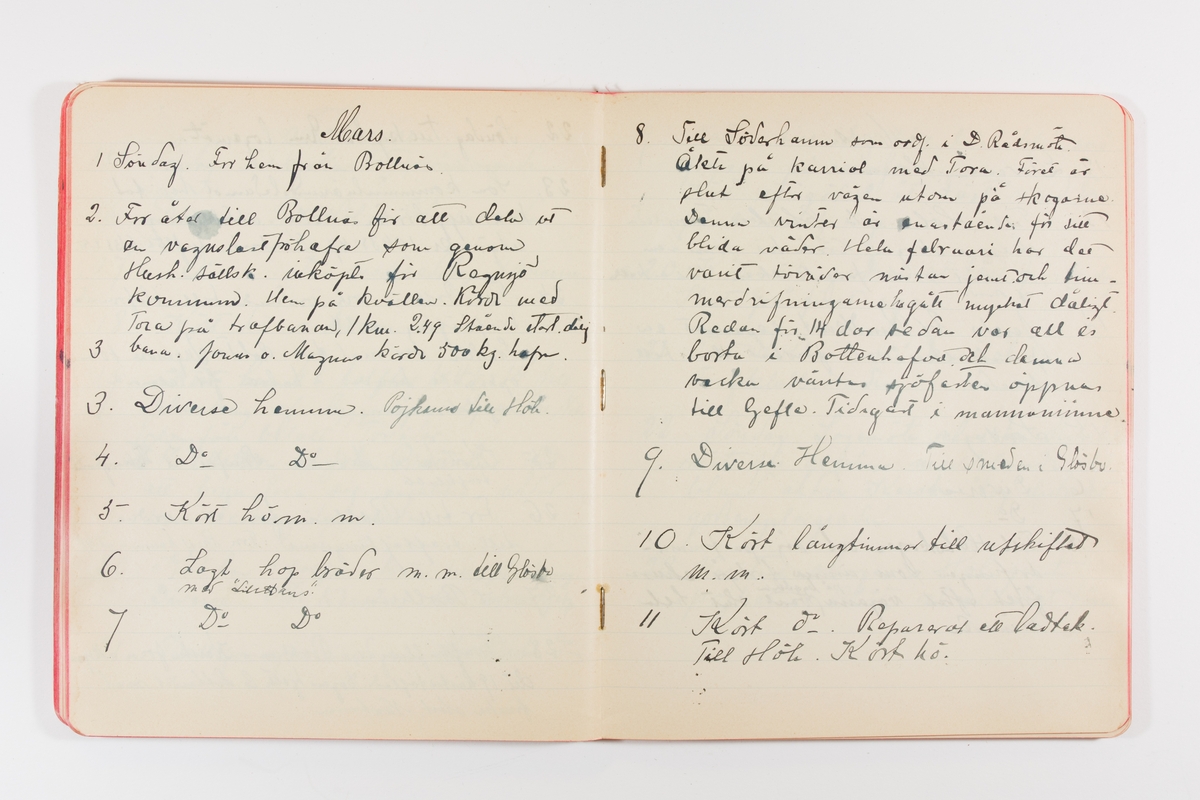 Mars.
1 Söndag. For hem från Bollnäs.
2. For åter till Bollnäs för att dela ut
en vagnslast fröhafre som genom
Hush. sällsk. inköpts för Regnsjö
kommun. Hem på kvällen. Körde med
Tora på trafbanan, 1 km. 2.49 Stående start, dålig
3 bana. Jonas o. Magnus körde 500 kg. hafre.
3. Diverse hemma. Pojkarne till Höh.
4. Do Do
5. Kört hö m. m.
6. Lagt hop bräder m. m. till Glösbo
med "Lill Hans".
7 Do Do
8. Till Söderhamn som ordf. i D. Rådsmöte.
Åkte på karriol med Tora. Föret är
slut efter vägen utom på skogarne.
Denna vinter är enastående för sitt
blida väder. Hela februari har det
varit töväder nästan jämt och tim-
merdrifningarne ha gått mycket dåligt.
Redan för 14 dar sedan var all is
borta i Bottenhafvet och denna
vecka väntas sjöfarten öppnas
till Gefle. Tidigast i mannaminne.
9. Diverse Hemma. Till smeden i Glösbo.
10. Kört långtimmer till utskiftet
m. m.
11 Kört do. Reparerat ett ladtak.
Till Höh. Kört hö.